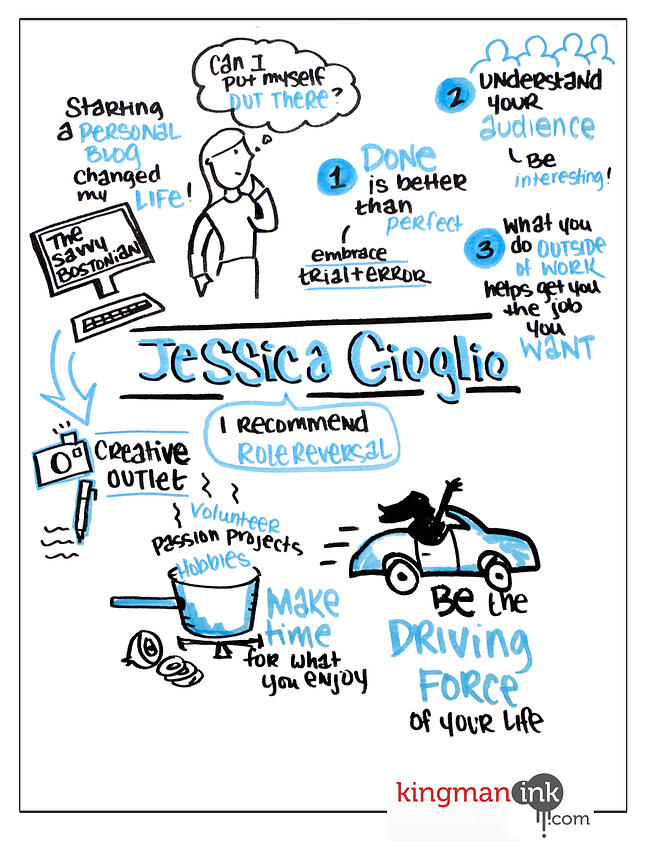 Starting
a PERSONAL
BLOG
changed
my LIFE!
The
Savvy
BOSTONIAN
Can I
put myself
OUT THERE?
1 DONE
is better
than
perfect
embrace
trial + ERROR
2 understand
your
audience
Be
interesting!
3 What you
do OUTSIDE
of WORK
helps get you
the job
you
WANT
Jessica Gioglio
I RECOMMEND
ROLE REVERSAL
CREATIVE
OUTLET
Volunteer
Passion projects
Hobbies
MAKE
time
for what
you enjoy
BE the
DRIVING
FORCE
of your life
kingmanink
.com